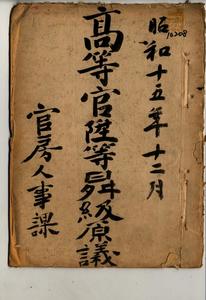 昭和十五年十二月
高等官陞等昇給原議
官房人事課